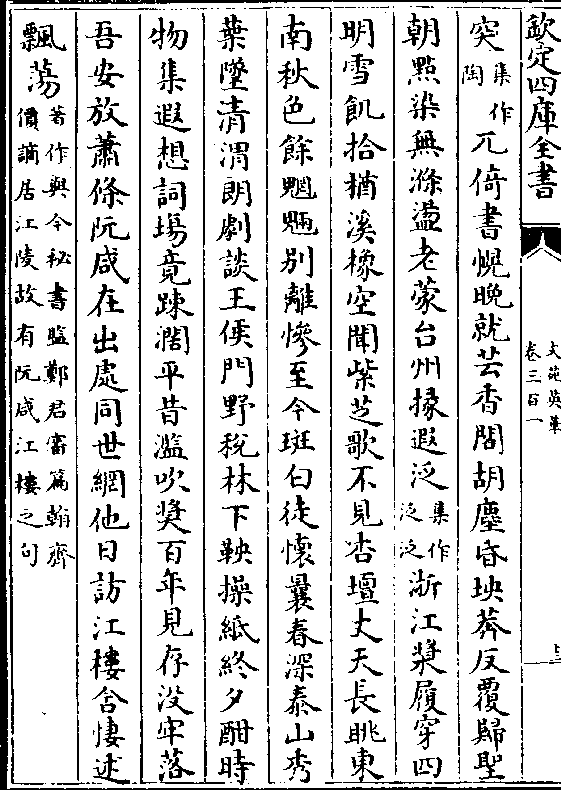 欽定四庫全書
文苑英華
卷三百一
突集作陶兀倚書幌晚就芸香閣胡塵昏坱莽反覆歸聖
朝㸃染無滌盪老蒙台州掾遐泛集作泛泛浙江槳履穿四
明雪飢拾楢溪橡空聞紫芝歌不見杏壇丈天長眺東
南秋色餘魍魎别離慘至今斑白徒懷曩春深泰山秀
葉墜清渭朗劇談王侯門野稅林下鞅操紙終夕酣時
物集遐想詞塲竟踈濶平昔濫吹奬百年見存沒牢落
吾安放蕭條阮咸在出處同世網他日訪江樓含悽述
飄蕩
著作與今秘書監鄭君審篇翰齊
價謫居江陵故有阮咸江樓之句